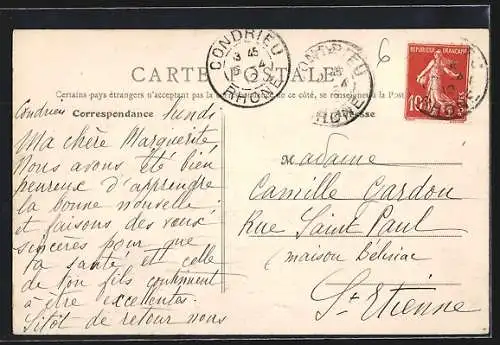 CARTE POSTALE
Certains pays étrangers n'acceptant pas la correspondance de ce côté, se renseigner à la Poste
Correspondance
Adresse
CONDRIEU
RHONE
CONDRIEU
RHONE
REPUBLIQUE FRANÇAISE
10
6
Condrieu Lundi
Ma chère Marguerite
Nous avons été bien
heureux d'apprendre
la bonne nouvelle
et faisons des vœux
sincères pour que
ta santé et celle
de ton fils continuent
à être excellentes.
Sitôt de retour nous
Madame
Camille Gardon
Rue Saint Paul
maison
St-Etienne